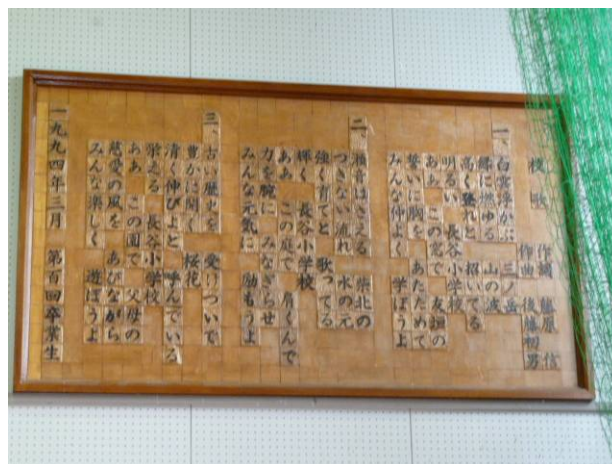 校歌
作詞 藤原 信
作曲 後藤初男
一、白雲浮かぶ 三ノ岳
緑に燃ゆる 山の波
高く登れと 招いてる
明るい 長谷小学校
ああ この窓で 友垣の
誓いに胸を あたためて
みんな仲よく 学ぼうよ
二、瀬音はさえる 柴北の
つきない流れ 水の元
強く育てと 歌ってる
輝く 長谷小学校
ああ この庭で 肩くんで
力を腕に みなぎらせ
みんな元気に 励もうよ
三、古い歴史を 受けついで
豊かに開く 桜花
清く伸びよと 呼んでいる
栄える 長谷小学校
ああ この園で 父母の
慈愛の風を あびながら
みんな楽しく 遊ぼうよ
一九九四年三月 第百回卒業生